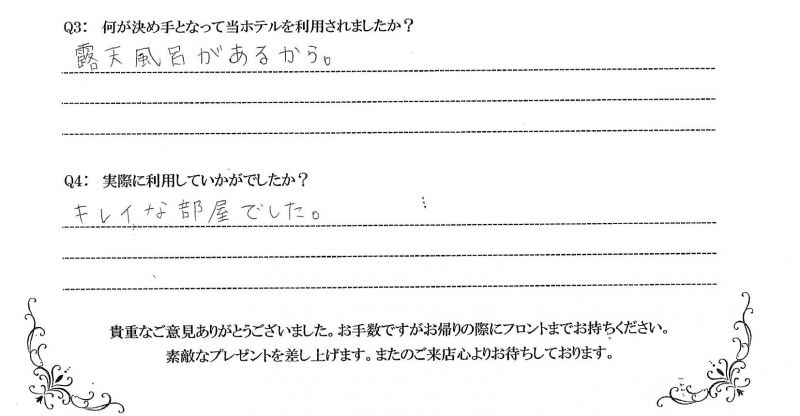 Q3: 何が決め手となって当ホテルを利用されましたか？
露天風呂があるから。
Q4: 実際に利用していかがでしたか？
キレイな部屋でした。
貴重なご意見ありがとうございました。お手数ですがお帰りの際にフロントまでお持ちください。
素敵なプレゼントを差し上げます。またのご来店心よりお待ちしております。